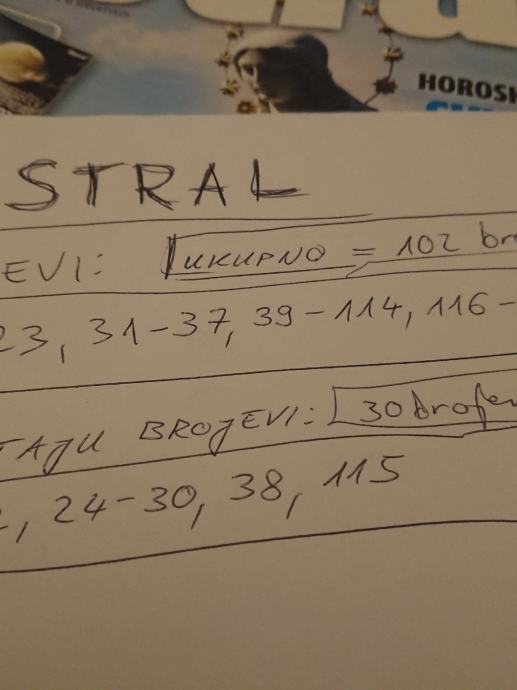 HOROSK
STRAL
EVI: UKUPNO = 102 br
23, 31-37, 39-114, 116-
TAJU BROJEVI: 30 brojev
2, 24-30, 38, 115